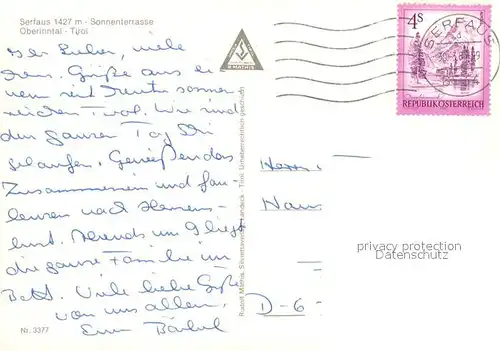 Serfaus 1427 m - Sonnenterrasse
Oberinntal - Tirol
Ihr Lieben, viele
Grüße aus
reichen Tirol. Wir sind
den ganzen Tag Ski
gelaufen. Genießen das
Zusammensein und fau-
lenzen nach Herzens-
lust. Abends um 9 liegt
die ganze Familie im
Bett. Viele liebe Grüße
von uns allen,
Eure Bärbel
Nr. 3377
Rudolf Mathis, Silvretta, Landeck - Tirol. Urheberrechtlich geschützt
4 S
REPUBLIK ÖSTERREICH
SERFAUS
Herrn
D-6
privacy protection
Datenschutz